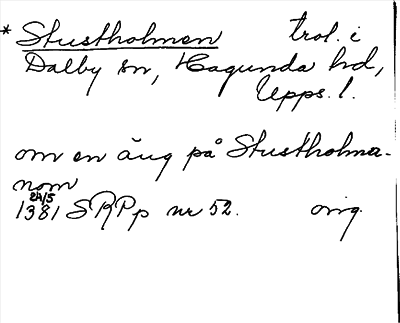 * Stustholmen trol. i
Dalby sn, Hagunda hd,
Upps. l.
om en äng på Stustholma-
nom
24/5
1381 SRPp nr 52. orig.